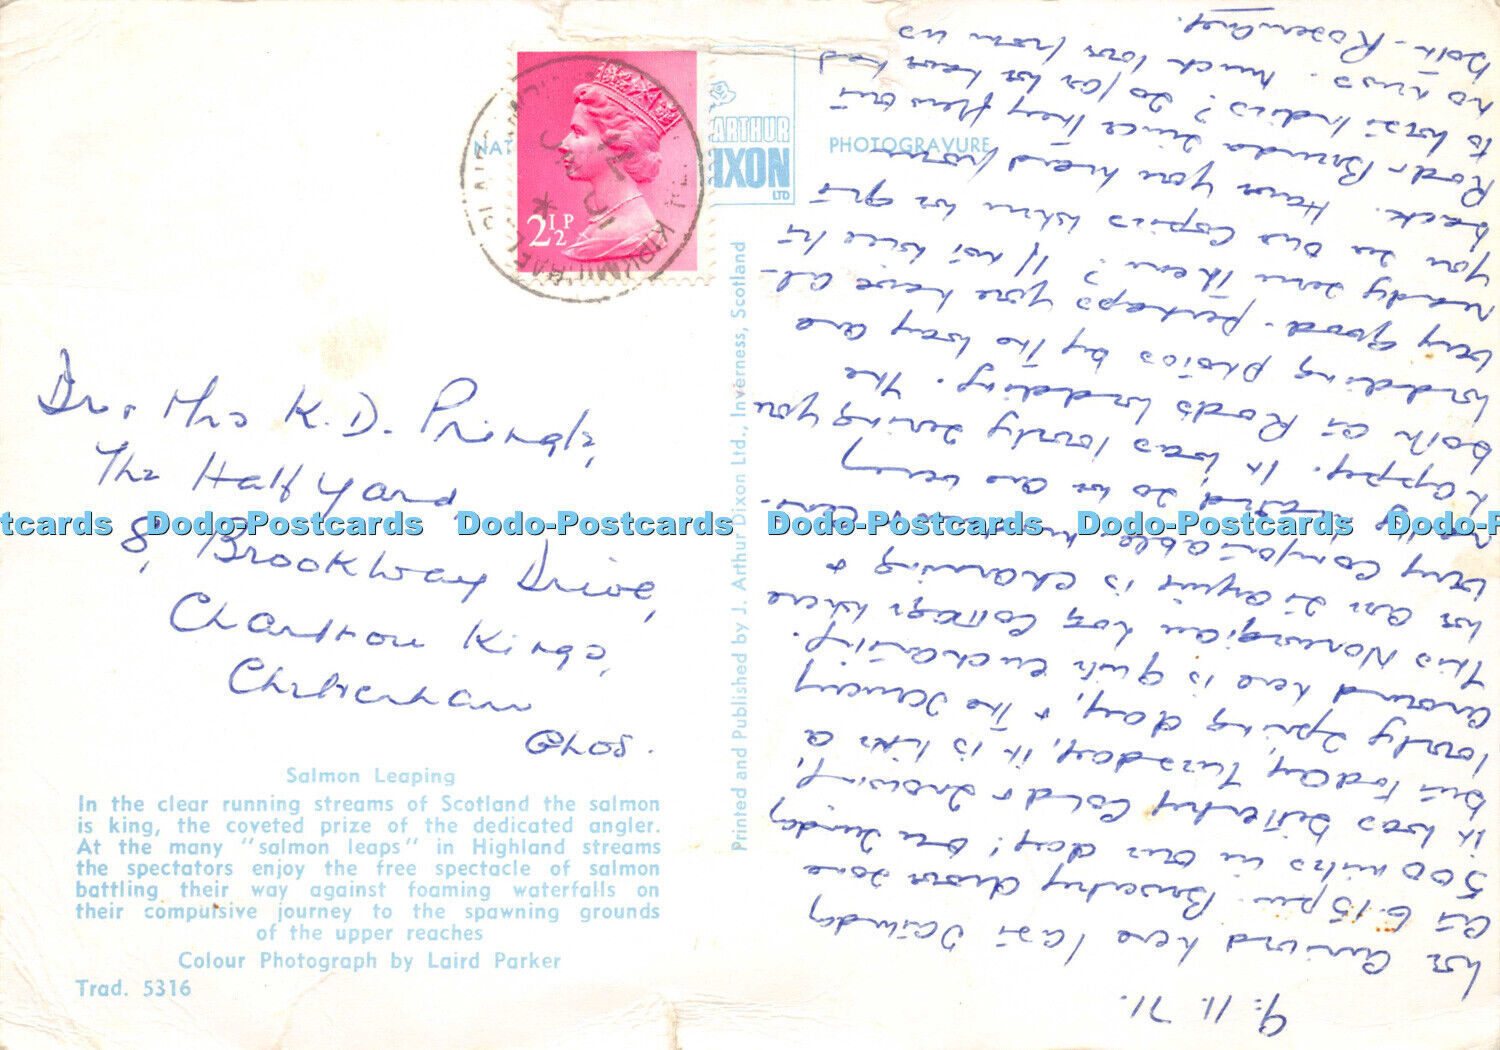 NAT
ARTHUR
DIXON
LTD
PHOTOGRAVURE
2½P
KIRKMICHAEL
Dr. Mrs K. D. Pringle,
The Half Yard
8, Brookway Drive,
Charlton Kings,
Cheltenham
Glos.
Dodo-Postcards Dodo-Postcards Dodo-Postcards Dodo-Postcards Dodo-Postcards
Salmon Leaping
In the clear running streams of Scotland the salmon
is king, the coveted prize of the dedicated angler.
At the many "salmon leaps" in Highland streams
the spectators enjoy the free spectacle of salmon
battling their way against foaming waterfalls on
their compulsive journey to the spawning grounds
of the upper reaches
Colour Photograph by Laird Parker
Trad. 5316
Printed and Published by J. Arthur Dixon Ltd., Inverness, Scotland
9.11.71.
We arrived here last Saturday
at 6.15pm. Beverley drove some
500 miles in one day! On Sunday
it was bitterly cold & snowing,
but today, Tuesday, it is like a
lovely Spring day, & the scenery
around here is quite enchanting.
This Norwegian log cottage where
we are staying is charming &
very comfortable
so we are very
happy. It was lovely seeing you
both at Rod's wedding. The
wedding photos by the way are
very good - perhaps you have al-
ready seen them? If not will let
you see our copies when we get
back. Have you heard from
Rod & Brenda since they flew out
to West Indies? So far we have had
no news. Much love from us
both - Rosemary.